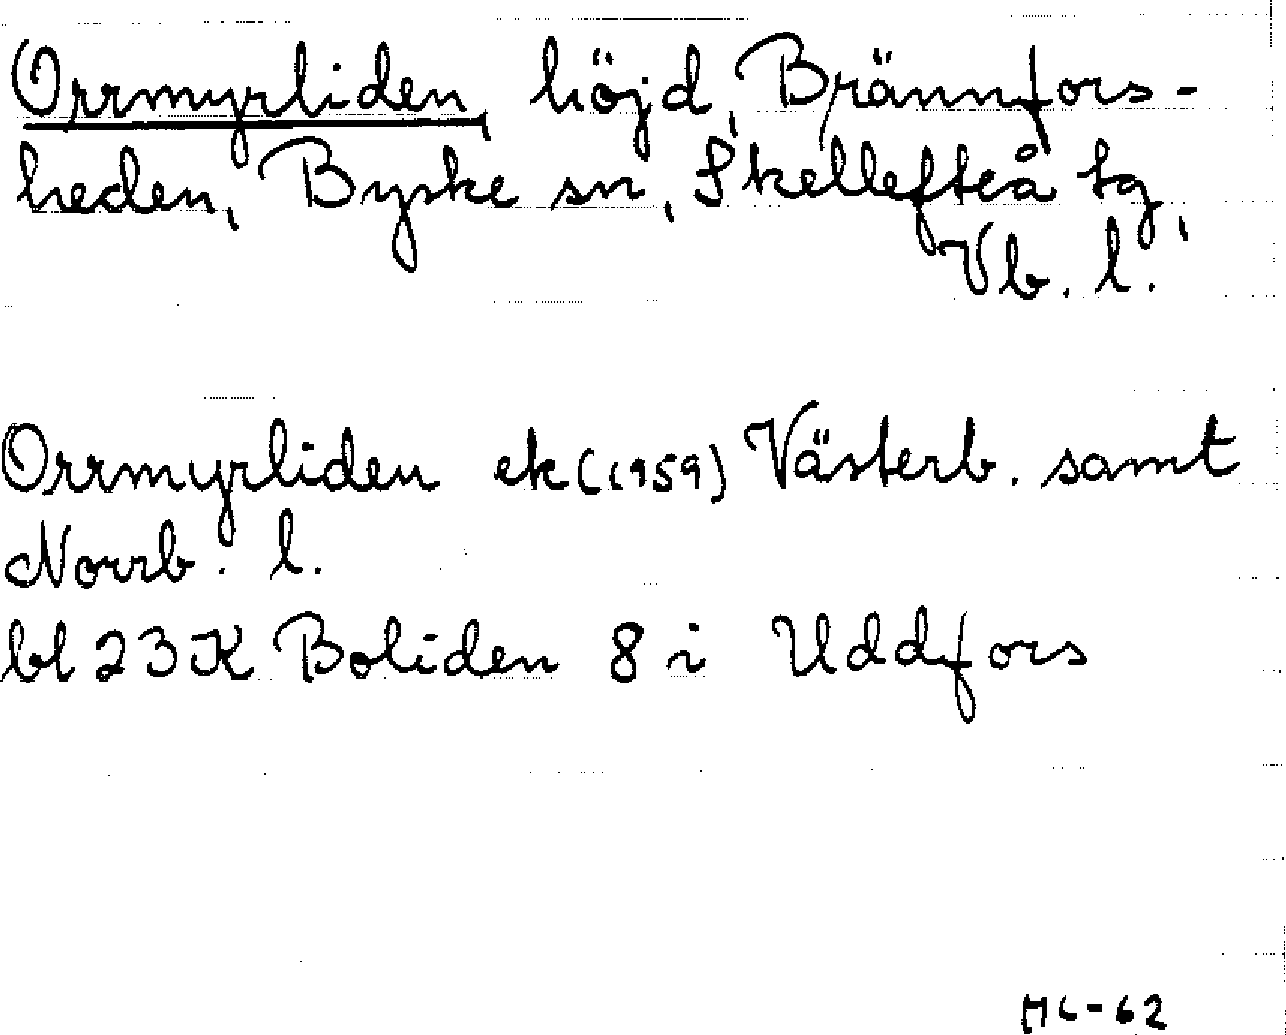 Orrmyrliden, höjd, Brännfors-
heden, Byske sn, Skellefteå tg,
Vb. l.
Orrmyrliden ek (1959) Västerb. samt
Norrb. l.
bl 23 K Boliden 8 i Uddfors
HL-62